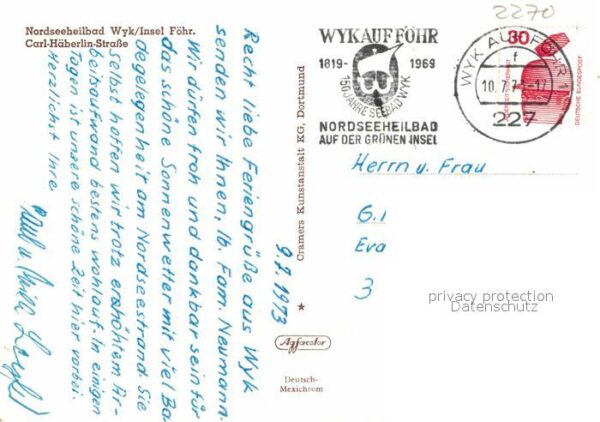 2270
Nordseeheilbad Wyk/Insel Föhr.
Carl-Häberlin-Straße
9.7.1973
Recht liebe Feriengrüße aus Wyk
senden wir Ihnen, lb. Fam. Neumann.
Wir dürfen froh und dankbar sein für
das schöne Sonnenwetter mit viel Ba-
degelegenheit am Nordseestrand. Sie
selbst hoffen wir trotz erhöhtem Ar-
beitsaufwand bestens wohlauf. In einigen
Tagen ist unsere schöne Zeit hier vorbei.
Herzlichst Ihre
Cramers Kunstanstalt KG, Dortmund
Agfacolor
Deutsch-
Mexichrom
WYK AUF FÖHR
1819- 1969
150 JAHRE SEEBAD WYK
NORDSEEHEILBAD
AUF DER GRÜNEN INSEL
WYK AUF FÖHR 1
f
10.7.7
227
30
DEUTSCHE BUNDESPOST
Herrn u. Frau
G. i
Eva
3
privacy protection
Datenschutz